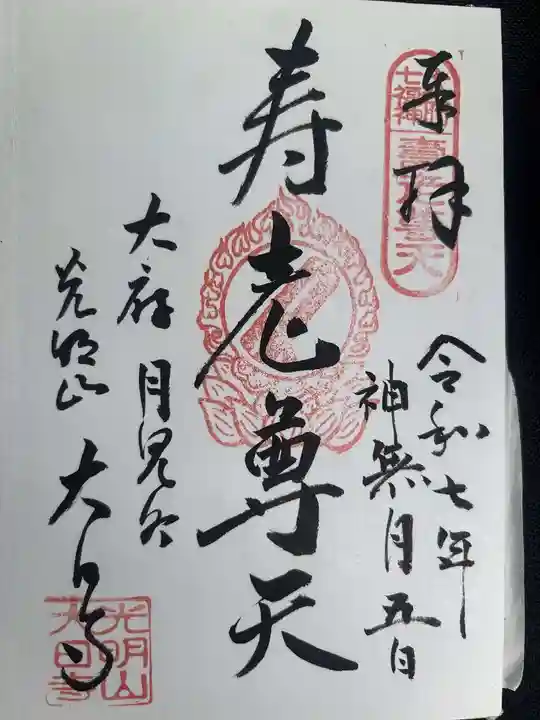 奉拝
七福神
寿老尊天
令和七年
神無月五日
寿老尊天
大府 月見公
光明山 大日寺
光明山
大日寺